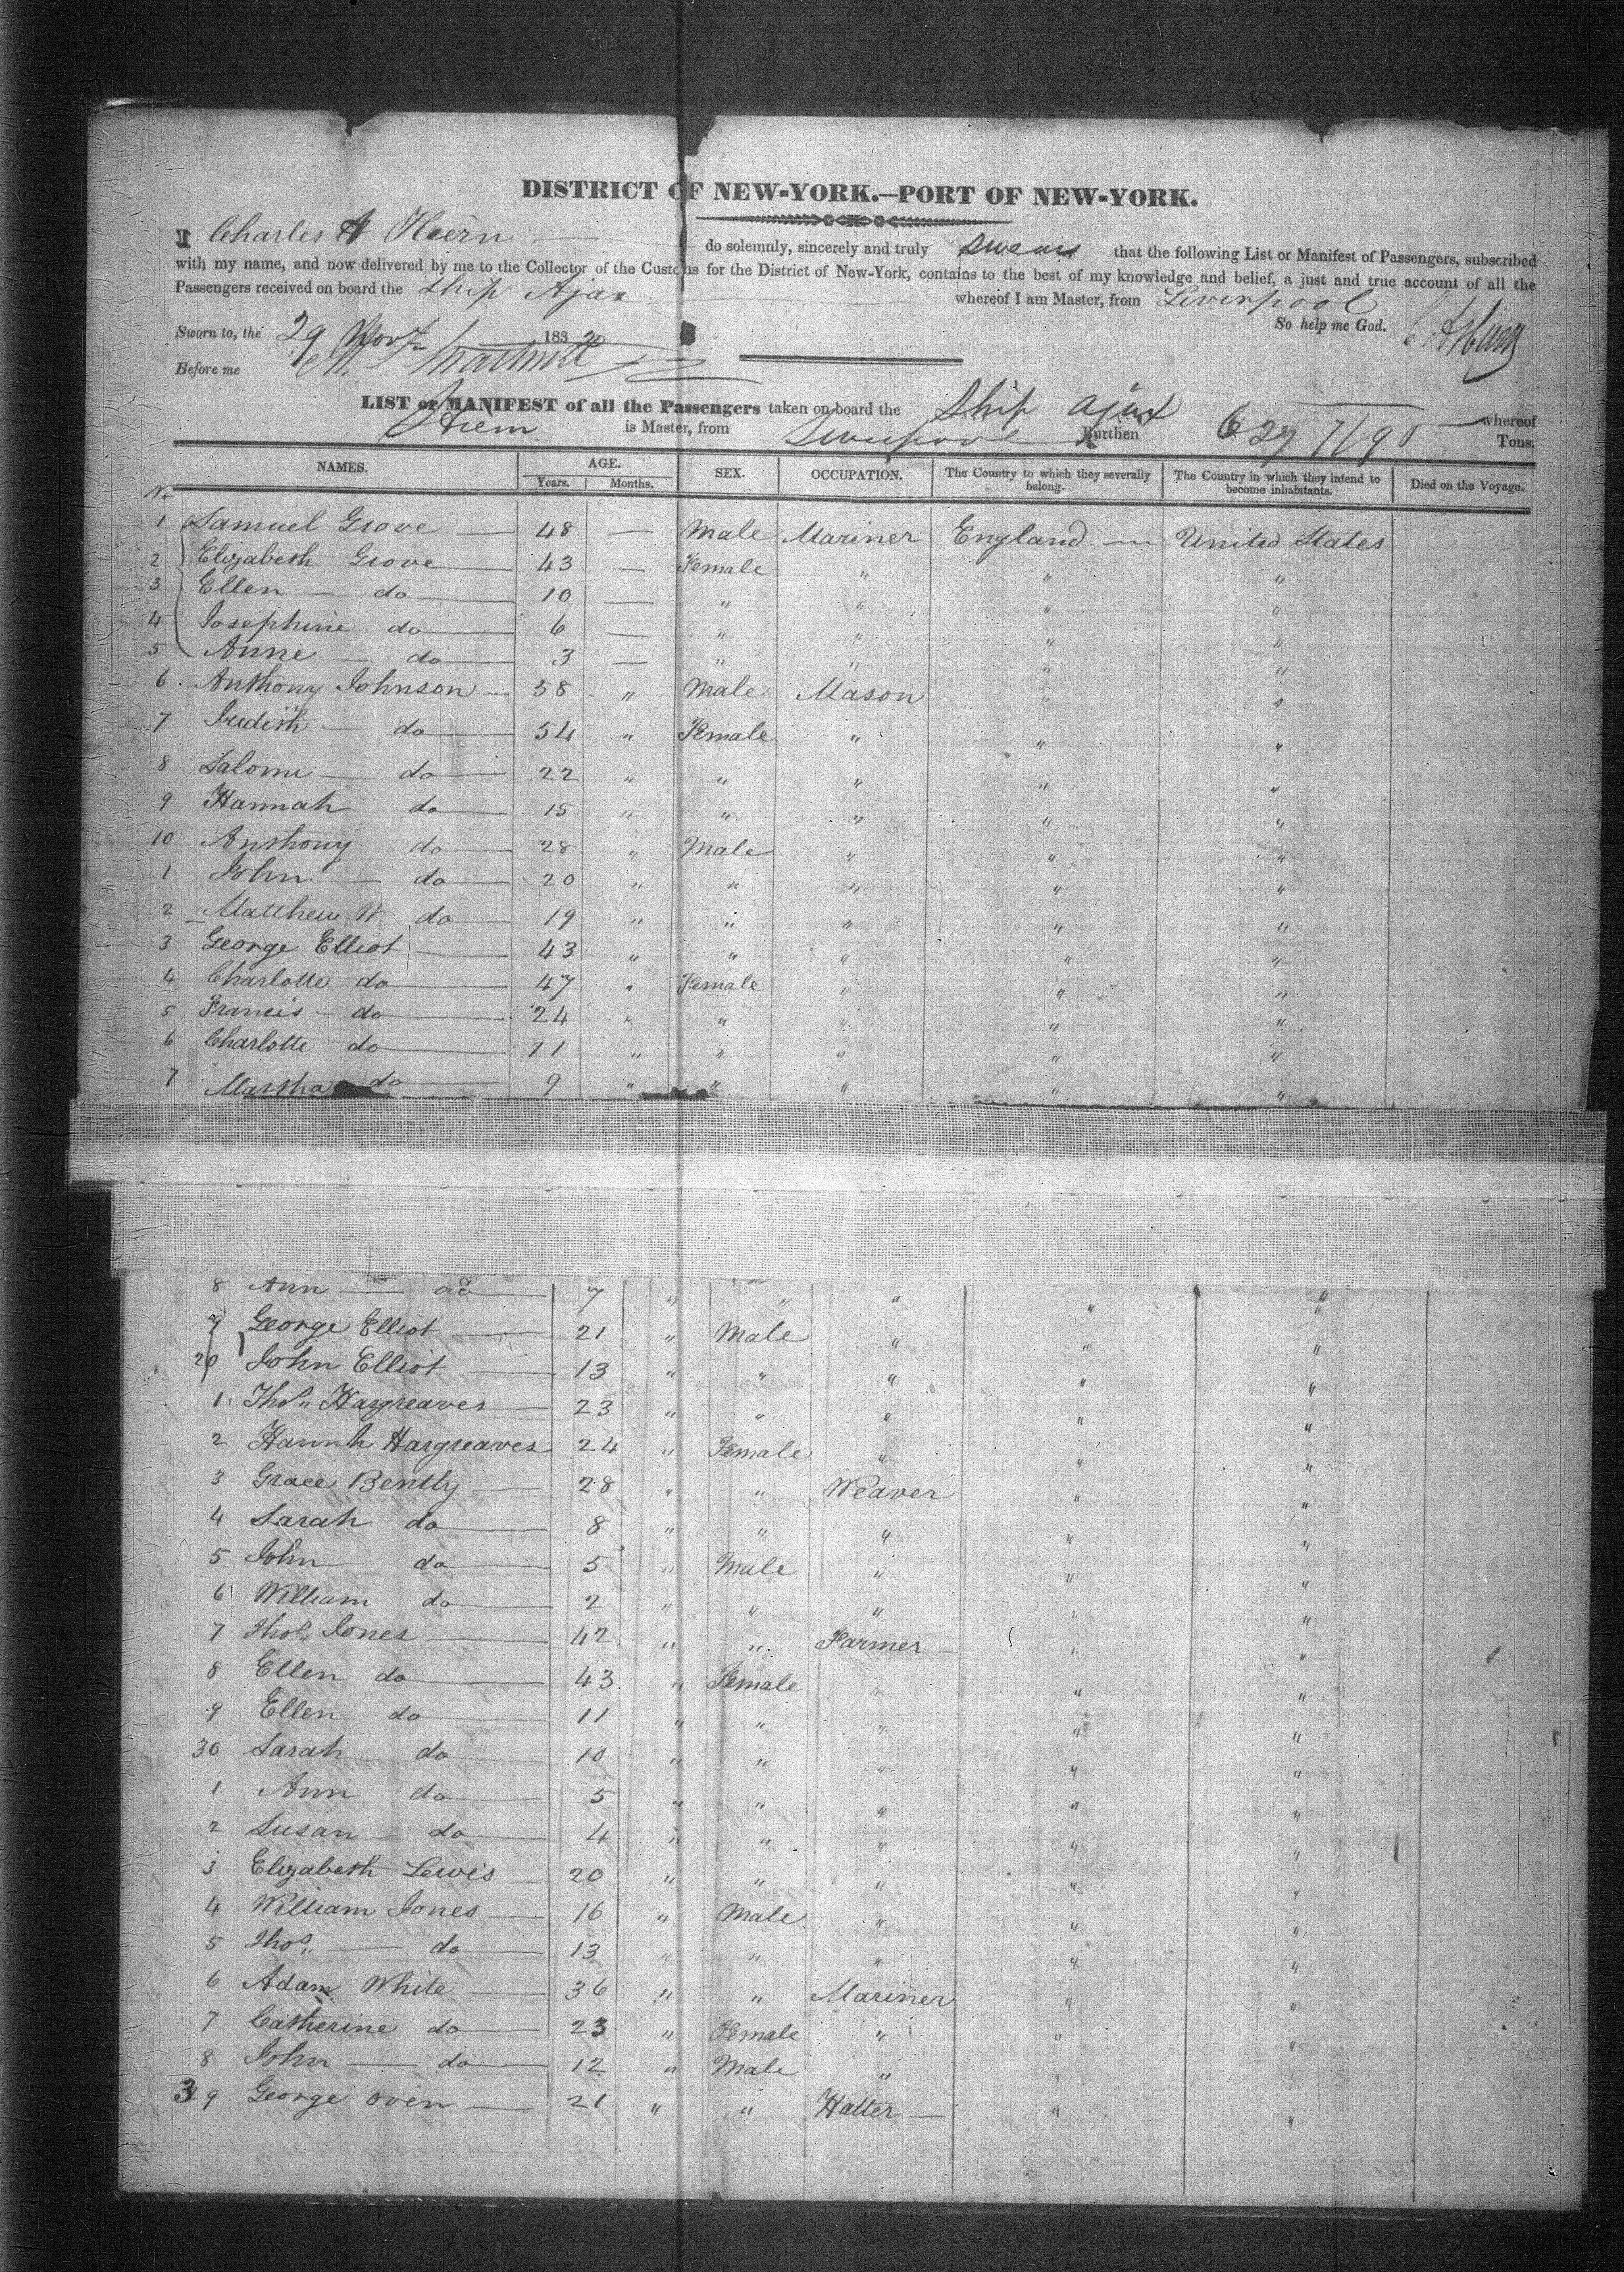 DISTRICT OF NEW-YORK.—PORT OF NEW-YORK.
I Charles A Hiern do solemnly, sincerely and truly swear that the following List or Manifest of Passengers, subscribed
with my name, and now delivered by me to the Collector of the Customs for the District of New-York, contains to the best of my knowledge and belief, a just and true account of all the
Passengers received on board the Ship Ajax whereof I am Master, from Liverpool
Sworn to, the 29 Novr 183 So help me God.
Before me
LIST or MANIFEST of all the Passengers taken on board the Ship Ajax whereof
Hiern is Master, from Liverpool Burthen 627 Tons.
NAMES. AGE. SEX. OCCUPATION. The Country to which they severally belong. The Country in which they intend to become inhabitants. Died on the Voyage.
No Years. Months.
1 Samuel Grove 48 — Male Mariner England United States
2 Elizabeth Grove 43 — Female " " "
3 Ellen do 10 — " " " "
4 Josephine do 6 — " " " "
5 Anne do 3 — " " " "
6 Anthony Johnson 58 " Male Mason " "
7 Judith do 54 " Female " " "
8 Salome do 22 " " " " "
9 Hannah do 15 " " " " "
10 Anthony do 28 " Male " " "
1 John do 20 " " " " "
2 Matthew W do 19 " " " " "
3 George Elliot 43 " " " " "
4 Charlotte do 47 " Female " " "
5 Francis do 24 " " " " "
6 Charlotte do 11 " " " " "
7 Martha do 9 " " " " "
8 Ann do 7 " " " " "
9 George Elliot 21 " Male " " "
20 John Elliot 13 " " " " "
1 Thos" Hargreaves 23 " " " " "
2 Hannah Hargreaves 24 " Female " " "
3 Grace Bently 28 " " Weaver " "
4 Sarah do 8 " " " " "
5 John do 5 " Male " " "
6 William do 2 " " " " "
7 Thos" Jones 42 " " Farmer " "
8 Ellen do 43 " Female " " "
9 Ellen do 11 " " " " "
30 Sarah do 10 " " " " "
1 Ann do 5 " " " " "
2 Susan do 4 " " " " "
3 Elizabeth Lewis 20 " " " " "
4 William Jones 16 " Male " " "
5 Thos" do 13 " " " " "
6 Adam White 36 " " Mariner " "
7 Catherine do 23 " Female " " "
8 John do 12 " Male " " "
39 George Oven 21 " " Hatter " "